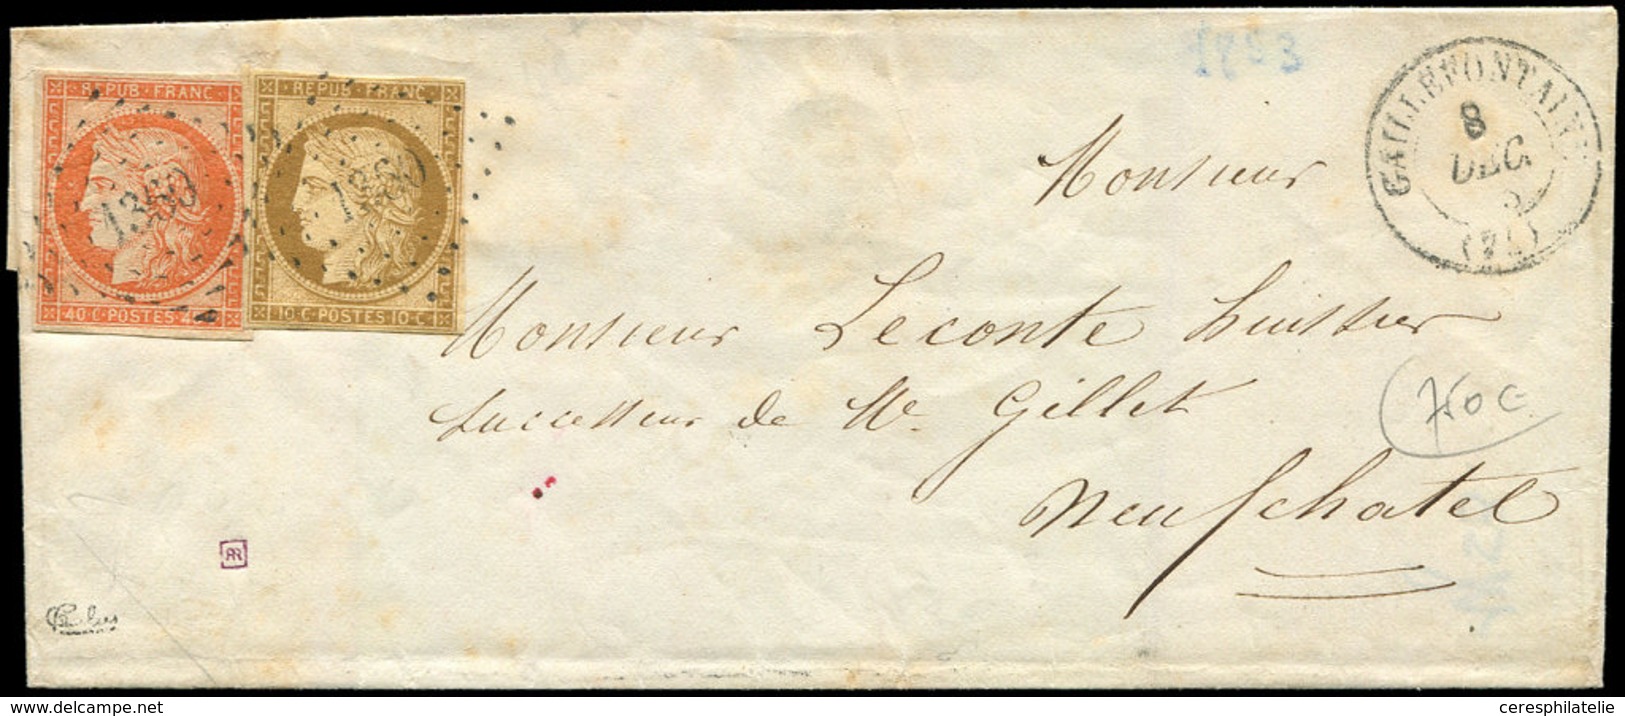 REPUB·FRANC
40·C·POSTES·4
1380
REPUB·FRANC
10·C·POSTES·10·C
GAILLEFONTAINE
8
DEC.
5
Monsieur
Monsieur Leconte huissier
successeur de Mr. Gillet
Neufchatel
750 €
www.delcampe.net
ceresphilatelie